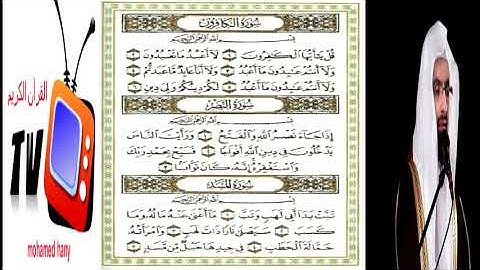 القرآن الكريم
TV
mohamed hany
سُورَةُ الكَافِرُونَ
بِسْمِ اللَّهِ الرَّحْمَٰنِ الرَّحِيمِ
قُلْ يَا أَيُّهَا الْكَافِرُونَ ١ لَا أَعْبُدُ مَا تَعْبُدُونَ ٢
وَلَا أَنتُمْ عَابِدُونَ مَا أَعْبُدُ ٣ وَلَا أَنَا عَابِدٌ مَّا عَبَدتُّمْ ٤
وَلَا أَنتُمْ عَابِدُونَ مَا أَعْبُدُ ٥ لَكُمْ دِينُكُمْ وَلِيَ دِينِ ٦
سُورَةُ النَّصْرِ
بِسْمِ اللَّهِ الرَّحْمَٰنِ الرَّحِيمِ
إِذَا جَاءَ نَصْرُ اللَّهِ وَالْفَتْحُ ١ وَرَأَيْتَ النَّاسَ
يَدْخُلُونَ فِي دِينِ اللَّهِ أَفْوَاجًا ٢ فَسَبِّحْ بِحَمْدِ رَبِّكَ
وَاسْتَغْفِرْهُ إِنَّهُ كَانَ تَوَّابًا ٣
سُورَةُ المَسَدِ
بِسْمِ اللَّهِ الرَّحْمَٰنِ الرَّحِيمِ
تَبَّتْ يَدَا أَبِي لَهَبٍ وَتَبَّ ١ مَا أَغْنَىٰ عَنْهُ مَالُهُ وَمَا
كَسَبَ ٢ سَيَصْلَىٰ نَارًا ذَاتَ لَهَبٍ ٣ وَامْرَأَتُهُ
حَمَّالَةَ الْحَطَبِ ٤ فِي جِيدِهَا حَبْلٌ مِّن مَّسَدٍ ٥